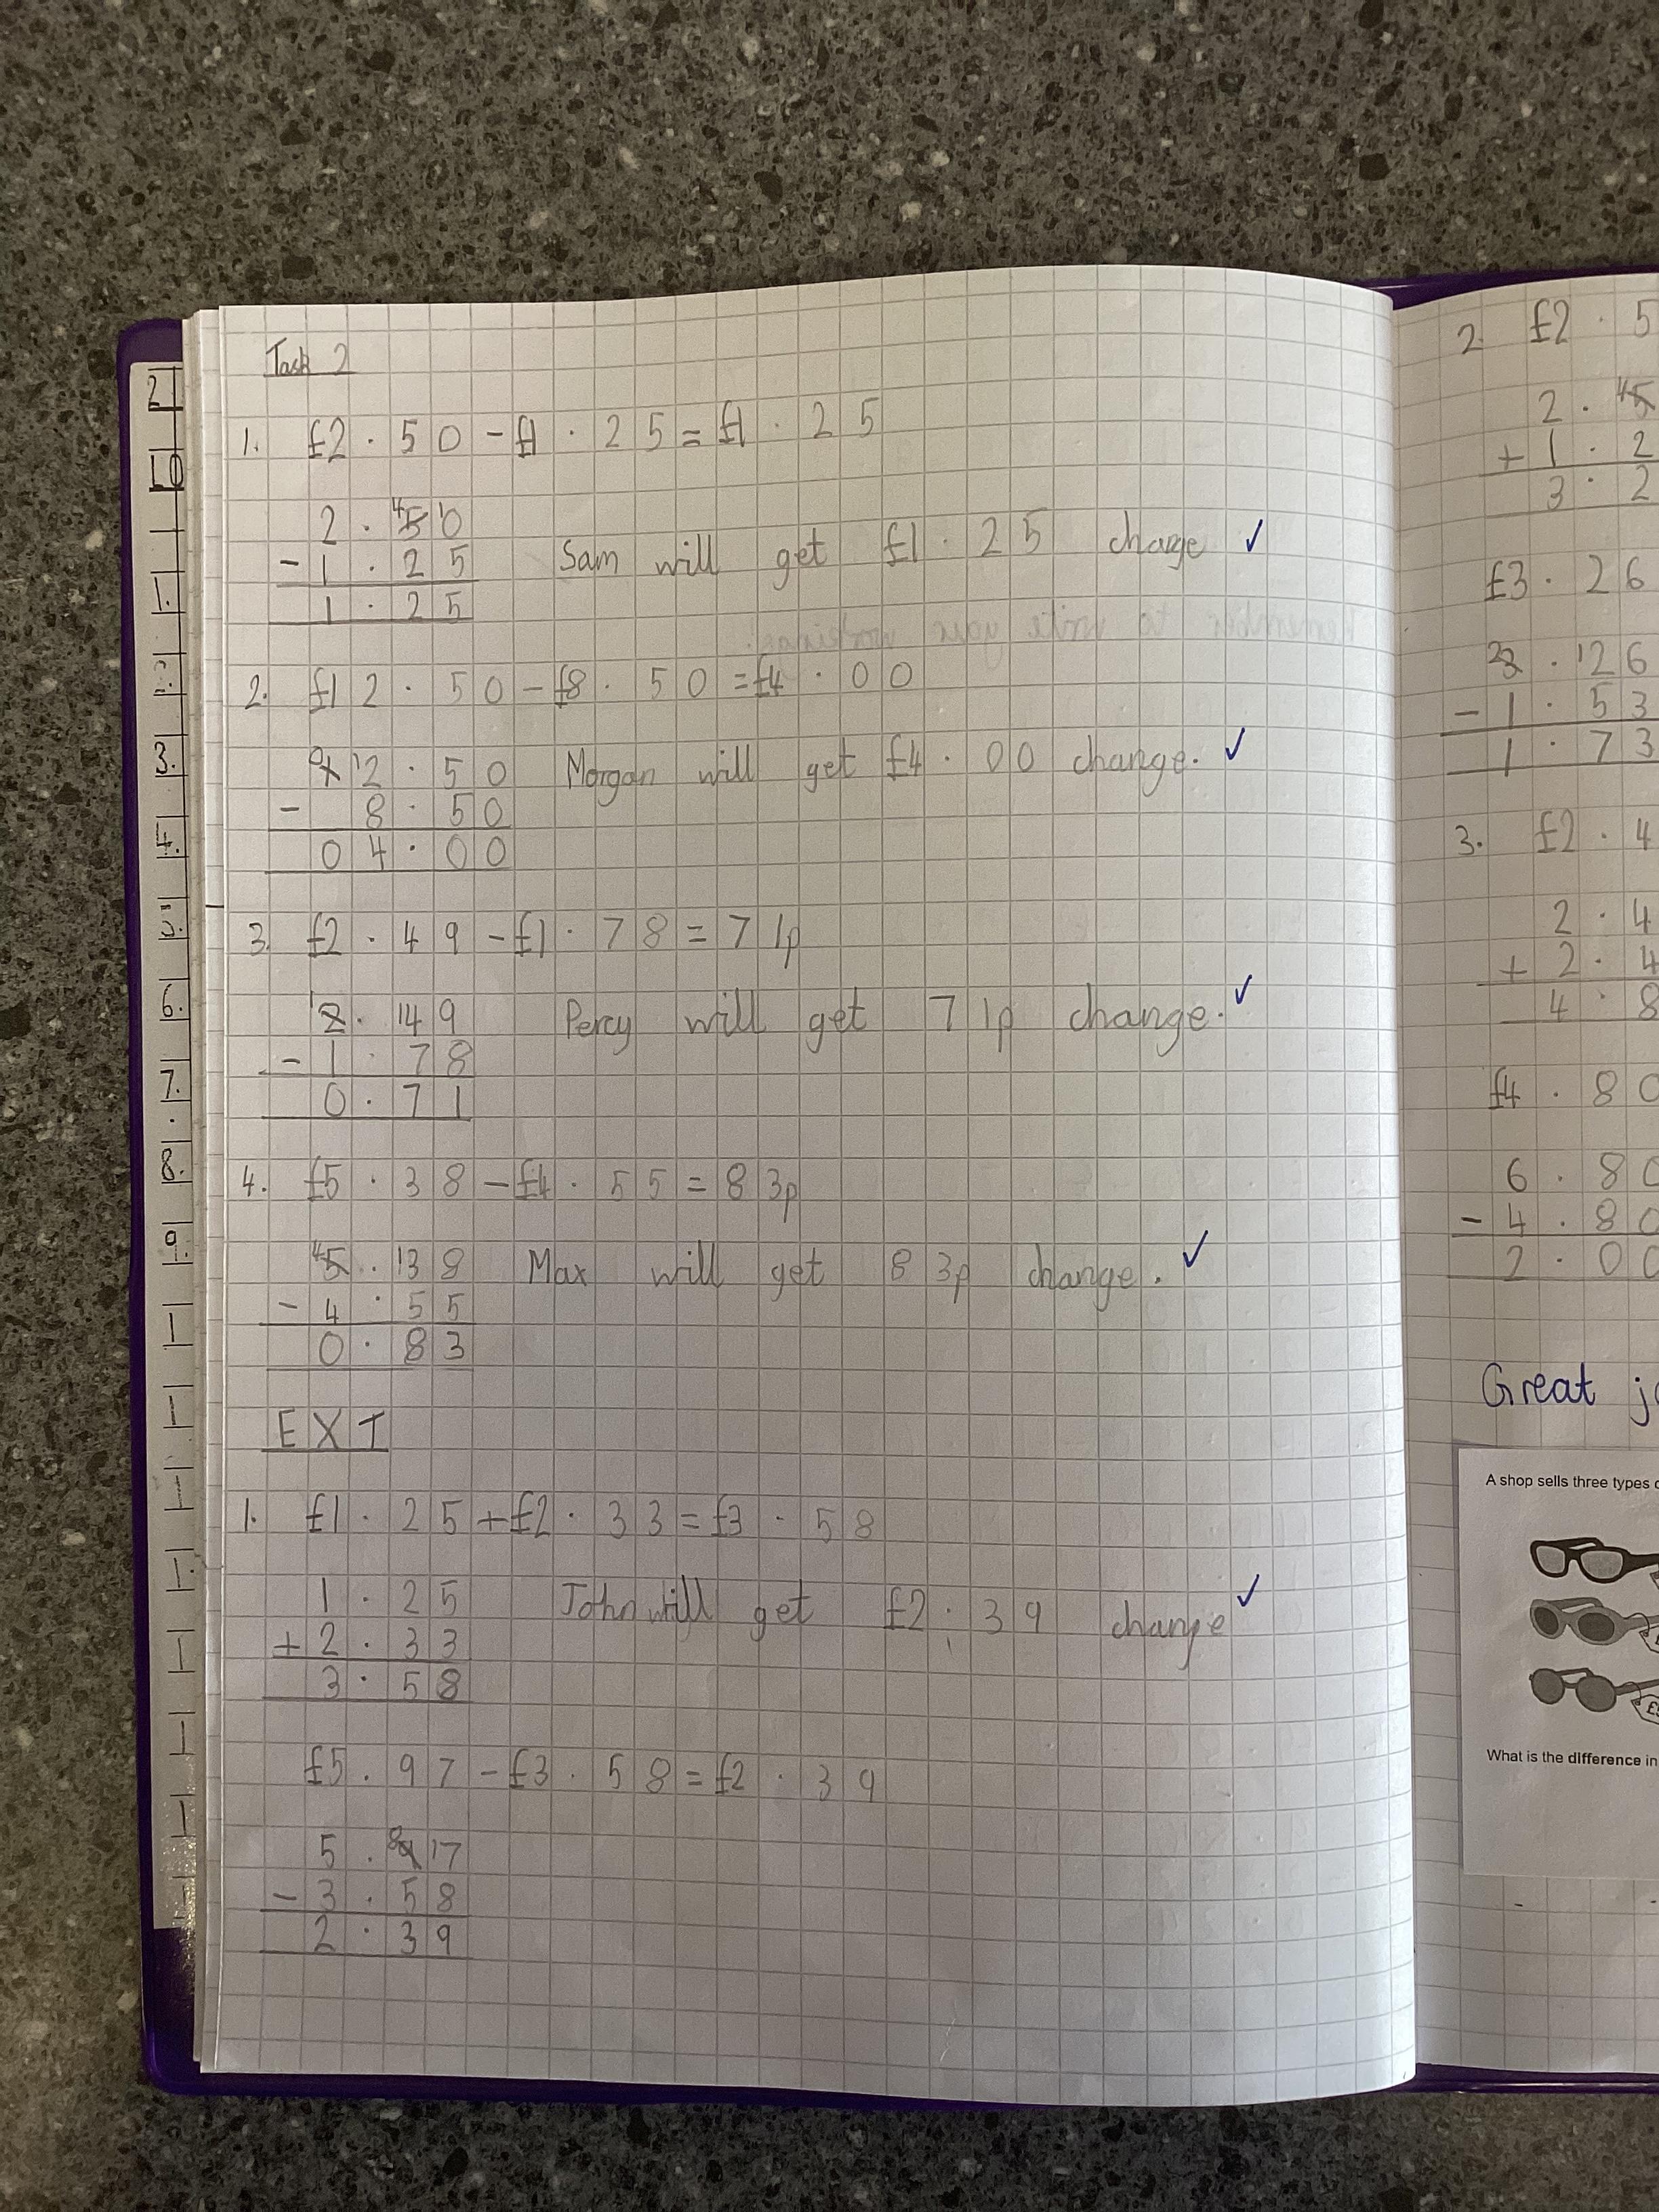 Task 2
1. £2.50-£1.25=£1.25
2.50
-1.25
1.25
Sam will get £1.25 change ✓
2. £12.50-£8.50=£4.00
12.50
-8.50
04.00
Morgan will get £4.00 change. ✓
3. £2.49-£1.78=71p
2.149
-1.78
0.71
Percy will get 71p change. ✓
4. £5.38-£4.55=83p
5.138
-4.55
0.83
Max will get 83p change. ✓
EXT
1. £1.25+£2.33=£3.58
1.25
+2.33
3.58
John will get £2.39 change ✓
£5.97-£3.58=£2.39
5.917
-3.58
2.39
2. £2.5
2.5
+1.2
3.2
£3.26
3.126
-1.53
1.73
3. £2.4
2.4
+2.4
4.8
£4.80
6.80
-4.80
2.00
Great
A shop sells three types
What is the difference in
2
10
1.
2.
3.
4.
5.
6.
7.
8.
9.